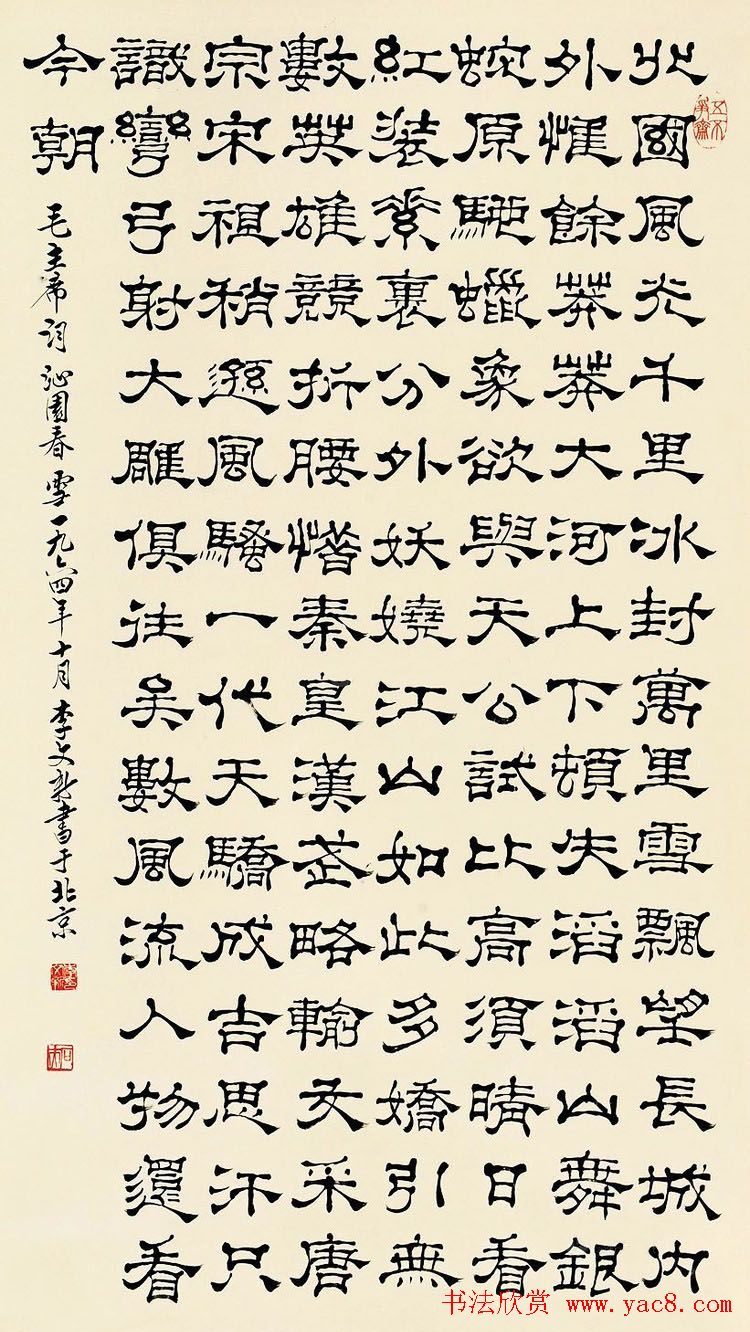 北國風光千里冰封萬里雪飄望長城內
外惟餘莽莽大河上下頓失滔滔山舞銀
蛇原馳蠟象欲與天公試比高須晴日看
紅裝素裹分外妖嬈江山如此多嬌引無
數英雄競折腰惜秦皇漢武略輸文采唐
宗宋祖稍遜風騷一代天驕成吉思汗只
識彎弓射大雕俱往矣數風流人物還看
今朝
毛主席詞 沁園春 雪 一九六四年十月 李文新書于北京
书法欣赏 www.yac8.com